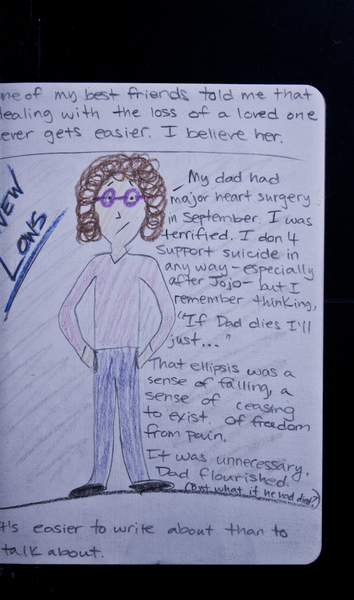 ne of my best friends told me that
dealing with the loss of a loved one
ever gets easier. I believe her.
NEW
LOWS
My dad had
major heart surgery
in September. I was
terrified. I don't
support suicide in
any way - especially
after Jojo - but I
remember thinking,
"If Dad dies I'll
just..."
That ellipsis was a
sense of falling, a
sense of ceasing
to exist. Of freedom
from pain.
It was unnecessary.
Dad flourished.
(But what if he had died?)
t's easier to write about than to
talk about.